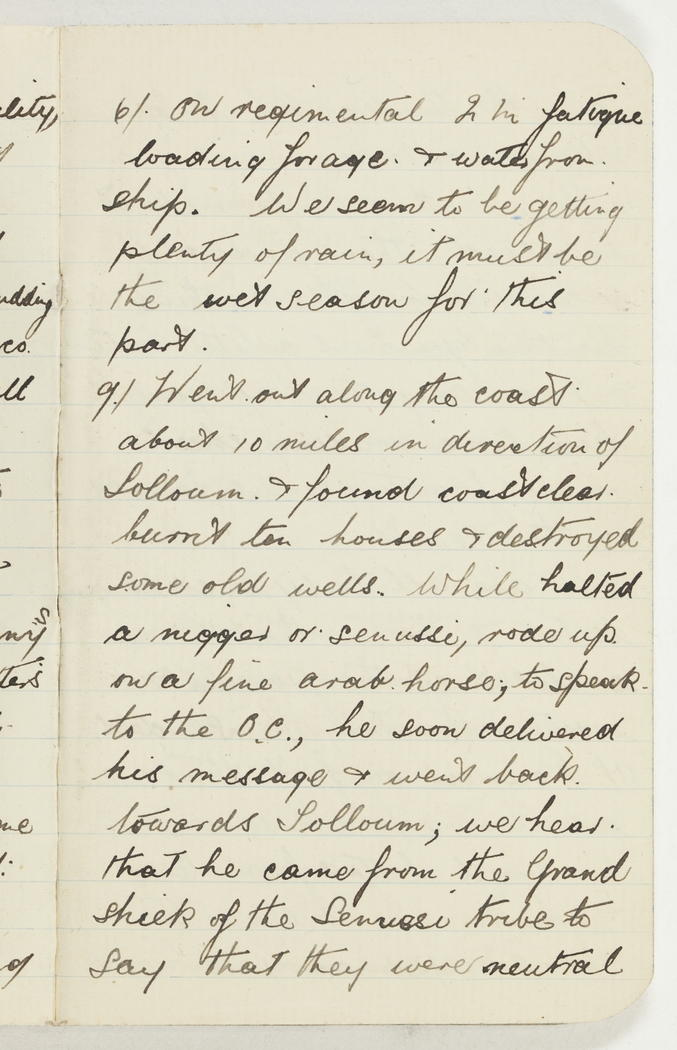 ality,
udding
co.
ll
my
ters
me
6/. On regimental 2 in fatigue
loading forage. & water from.
ship. We seem to be getting
plenty of rain, it must be
the wet season for this
part.
9/ Went out along the coast
about 10 miles in direction of
Solloum. & found coast clear.
burnt ten houses & destroyed
some old wells. While halted
a nigger or senussi, rode up
on a fine arab horse; to speak.
to the O.C., he soon delivered
his message & went back.
towards Solloum; we hear.
that he came from the Grand
shiek of the Senussi tribe to
say that they were neutral